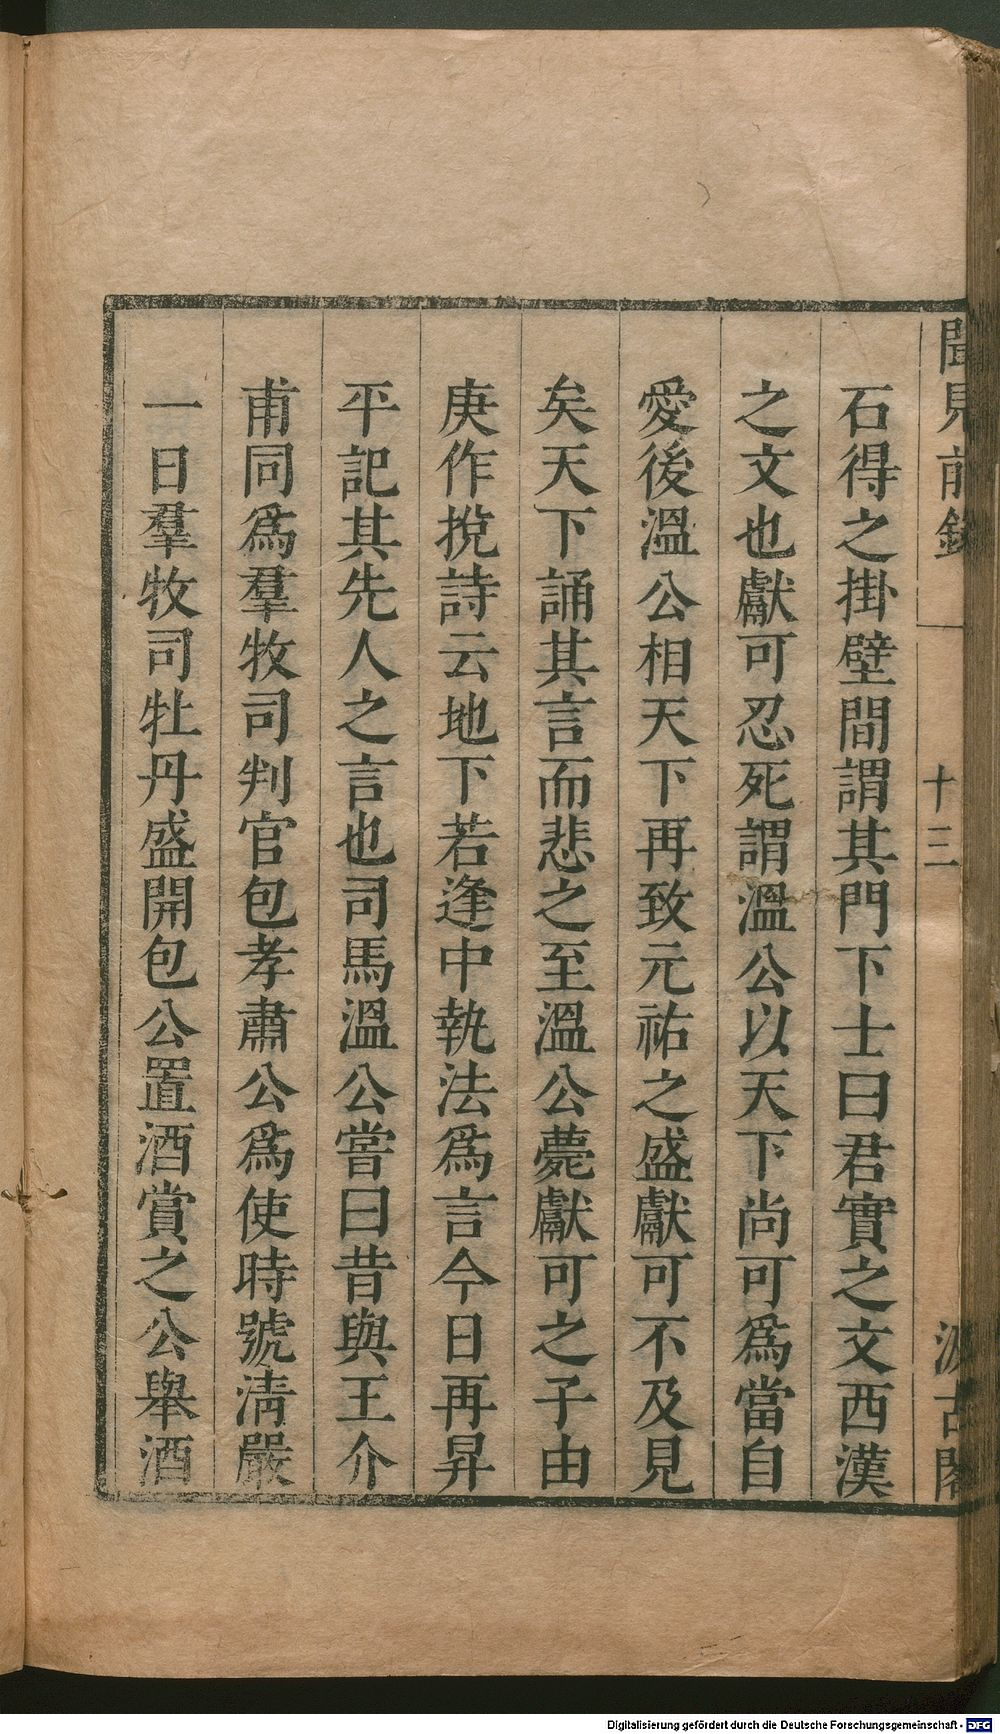 聞見前錄
十三
汲古閣
石得之掛壁間謂其門下士曰君實之文西漢
之文也獻可忍死謂溫公以天下尚可爲當自
愛後溫公相天下再致元祐之盛獻可不及見
矣天下誦其言而悲之至溫公薨獻可之子由
庚作挽詩云地下若逢中執法爲言今日再昇
平記其先人之言也司馬溫公嘗曰昔與王介
甫同爲羣牧司判官包孝肅公爲使時號淸嚴
一日羣牧司牡丹盛開包公置酒賞之公舉酒
Digitalisierung gefördert durch die Deutsche Forschungsgemeinschaft - DFG